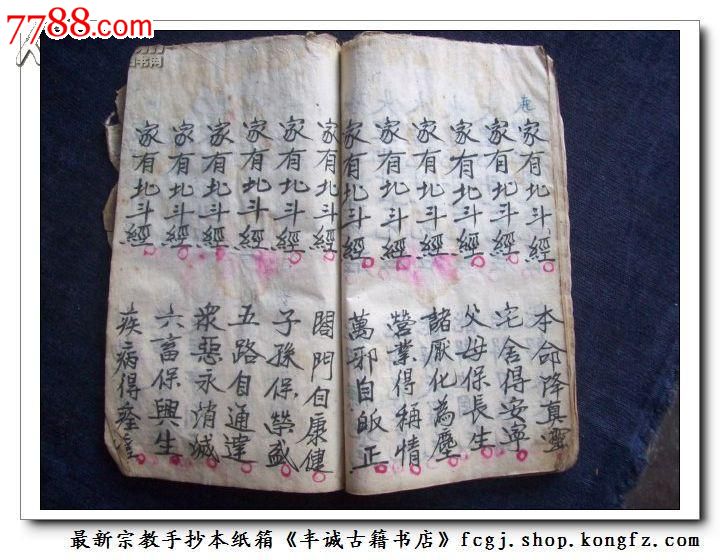 7788.com
书网
家有北斗經 本命降真靈
家有北斗經 宅舍得安寧
家有北斗經 父母保長生
家有北斗經 諸厭化為塵
家有北斗經 營業得稱情
家有北斗經 萬邪自皈正
家有北斗經 閤門自康健
家有北斗經 子孫保榮盛
家有北斗經 五路自通達
家有北斗經 衆惡永消滅
家有北斗經 六畜保興生
家有北斗經 疾病得痊
最新宗教手抄本纸箱《丰诚古籍书店》fcgj.shop.kongfz.com